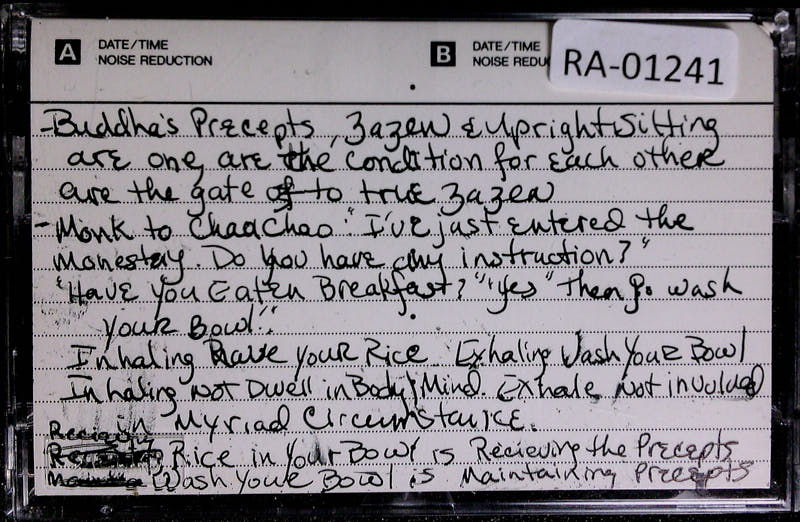 A DATE/TIME NOISE REDUCTION
B DATE/TIME NOISE REDU
RA-01241
-Buddha's Precepts, Zazen & Upright Sitting
are one, are the condition for each other
are the gate of to true zazen
- Monk to ChaoChao "I've just entered the
monestay. Do you have any instruction?"
"Have you Eaten Breakfast?" "Yes" Then go wash
your Bowl."
Inhaling Have your Rice Exhaling Wash Your Bowl
Inhaling Not Dwell in Body & Mind. Exhale Not involved
in Myriad Circumstance.
Recieving
Rice in Your Bowl is Recieving the Precepts
Wash Your Bowl is Maintaining Precepts